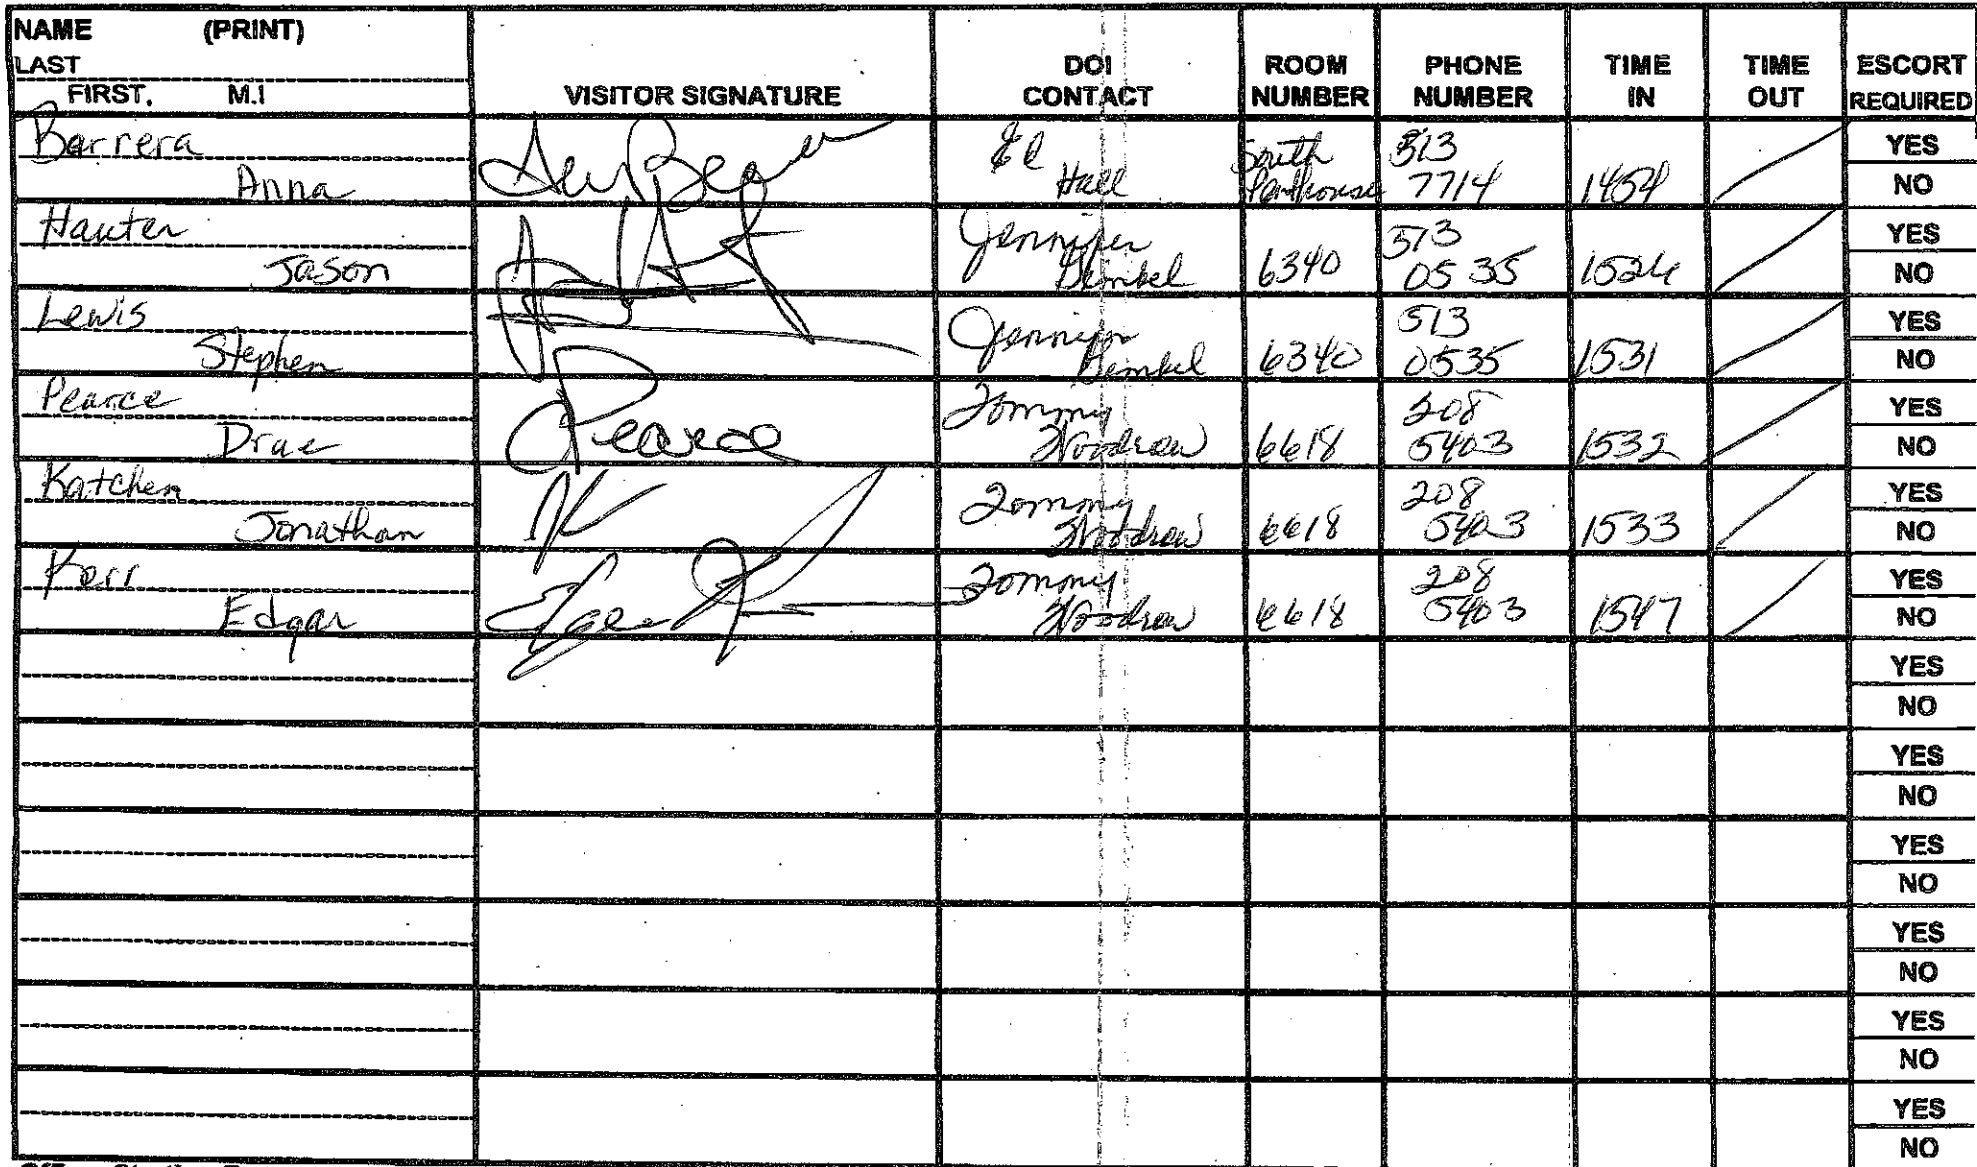 NAME (PRINT)
LAST
FIRST, M.I
VISITOR SIGNATURE
DOI CONTACT
ROOM NUMBER
PHONE NUMBER
TIME IN
TIME OUT
ESCORT REQUIRED
Barrera
Anna
Ed
Hall
South
Penthouse
513
7714
1454
YES
NO
Hauter
Jason
Jennifer
6340
513
0535
YES
NO
Lewis
Stephen
6340
513
0535
1531
YES
NO
Pearce
Drue
Pearce
Tommy
Woodrow
6618
208
5403
1532
YES
NO
Katchen
Jonathan
JK
Tommy
Woodrow
6618
208
5403
1533
YES
NO
Kerr
Edgar
Tommy
Woodrow
6618
208
5403
1547
YES
NO
YES
NO
YES
NO
YES
NO
YES
NO
YES
NO
YES
NO